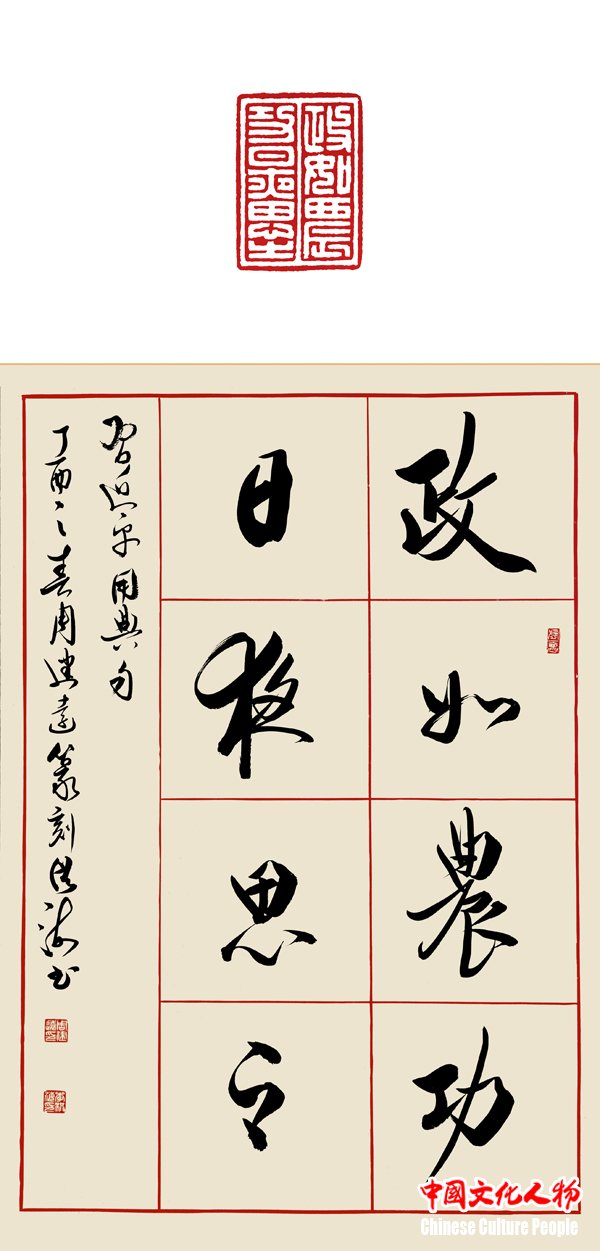 政如農
功日夜思之
政如農功
日夜思之
習近平用典句
丁酉之春周建遠篆刻海书
中國文化人物
Chinese Culture People